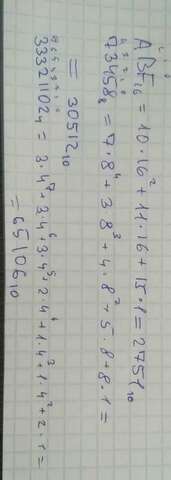 2 1 0
ABF₁₆ = 10·16² + 11·16 + 15·1 = 2751₁₀
4 3 2 1 0
73458₈ = 7·8⁴ + 3 8³ + 4·8² + 5·8 + 8·1 =
= 30512₁₀
33321102₄ = 3·4⁷ + 3·4⁶ + 3·4⁵ + 2·4⁴ + 1·4³ + 1 4² + 2·1 =
= 65106₁₀